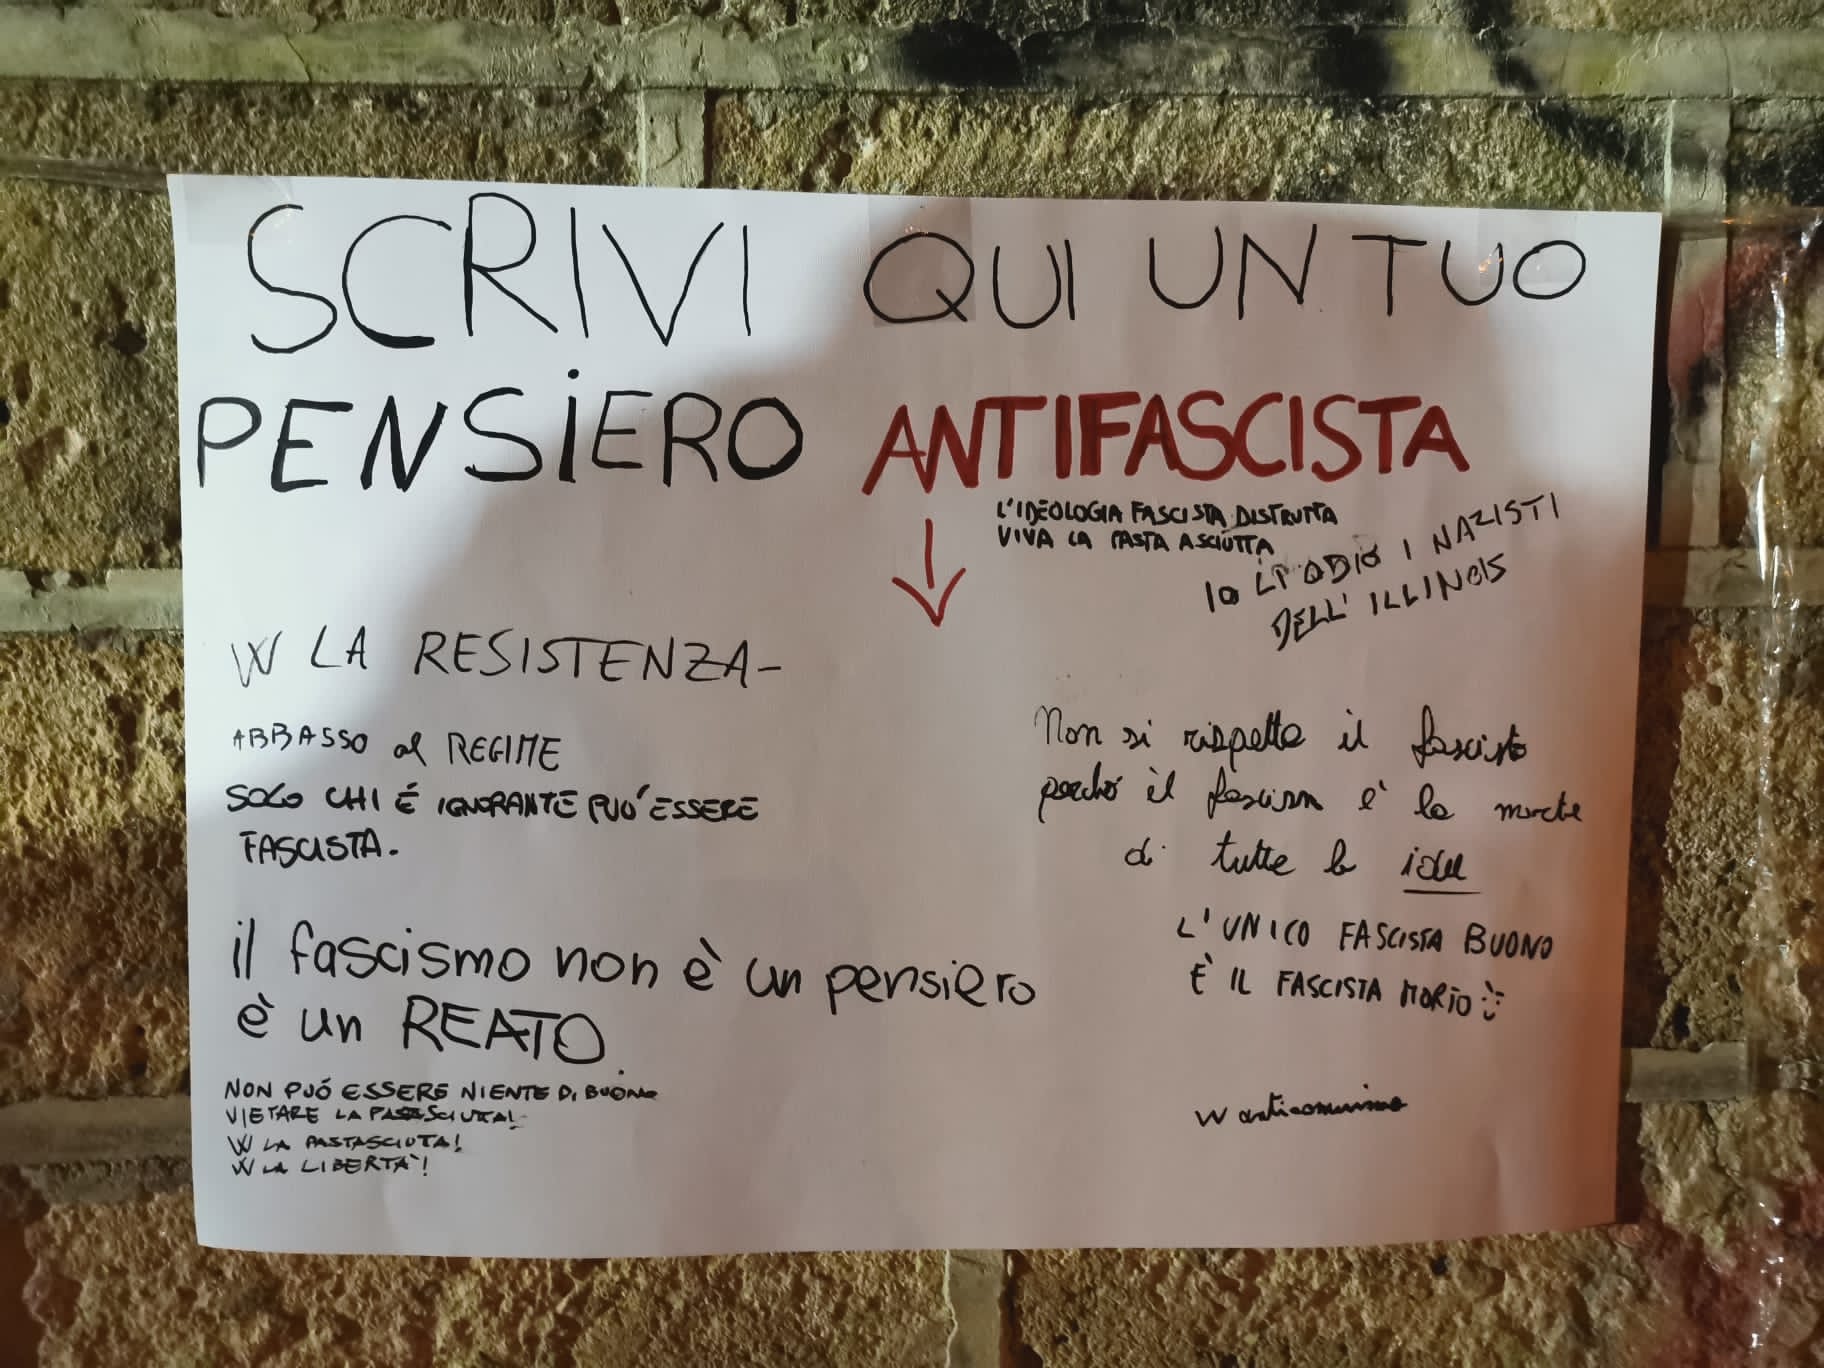 SCRIVI QUI UN TUO
PENSIERO ANTIFASCISTA
L'IDEOLOGIA FASCISTA DISTRUTTA
VIVA LA PASTA ASCIUTTA
IO LI ODIO I NAZISTI
DELL'ILLINOIS
W LA RESISTENZA-
ABBASSO al REGIME
SOLO CHI É IGNORANTE PUO' ESSERE
FASCISTA.
il fascismo non è un pensiero
è un REATO
NON PUÓ ESSERE NIENTE DI BUONO
VIETARE LA PASTASCIUTTA!
W LA PASTASCIUTA!
W LA LIBERTA'!
Non si rispetta il fascista
perché il fascism è la morte
di tutte le idee
L'UNICO FASCISTA BUONO
È IL FASCISTA MORTO
W